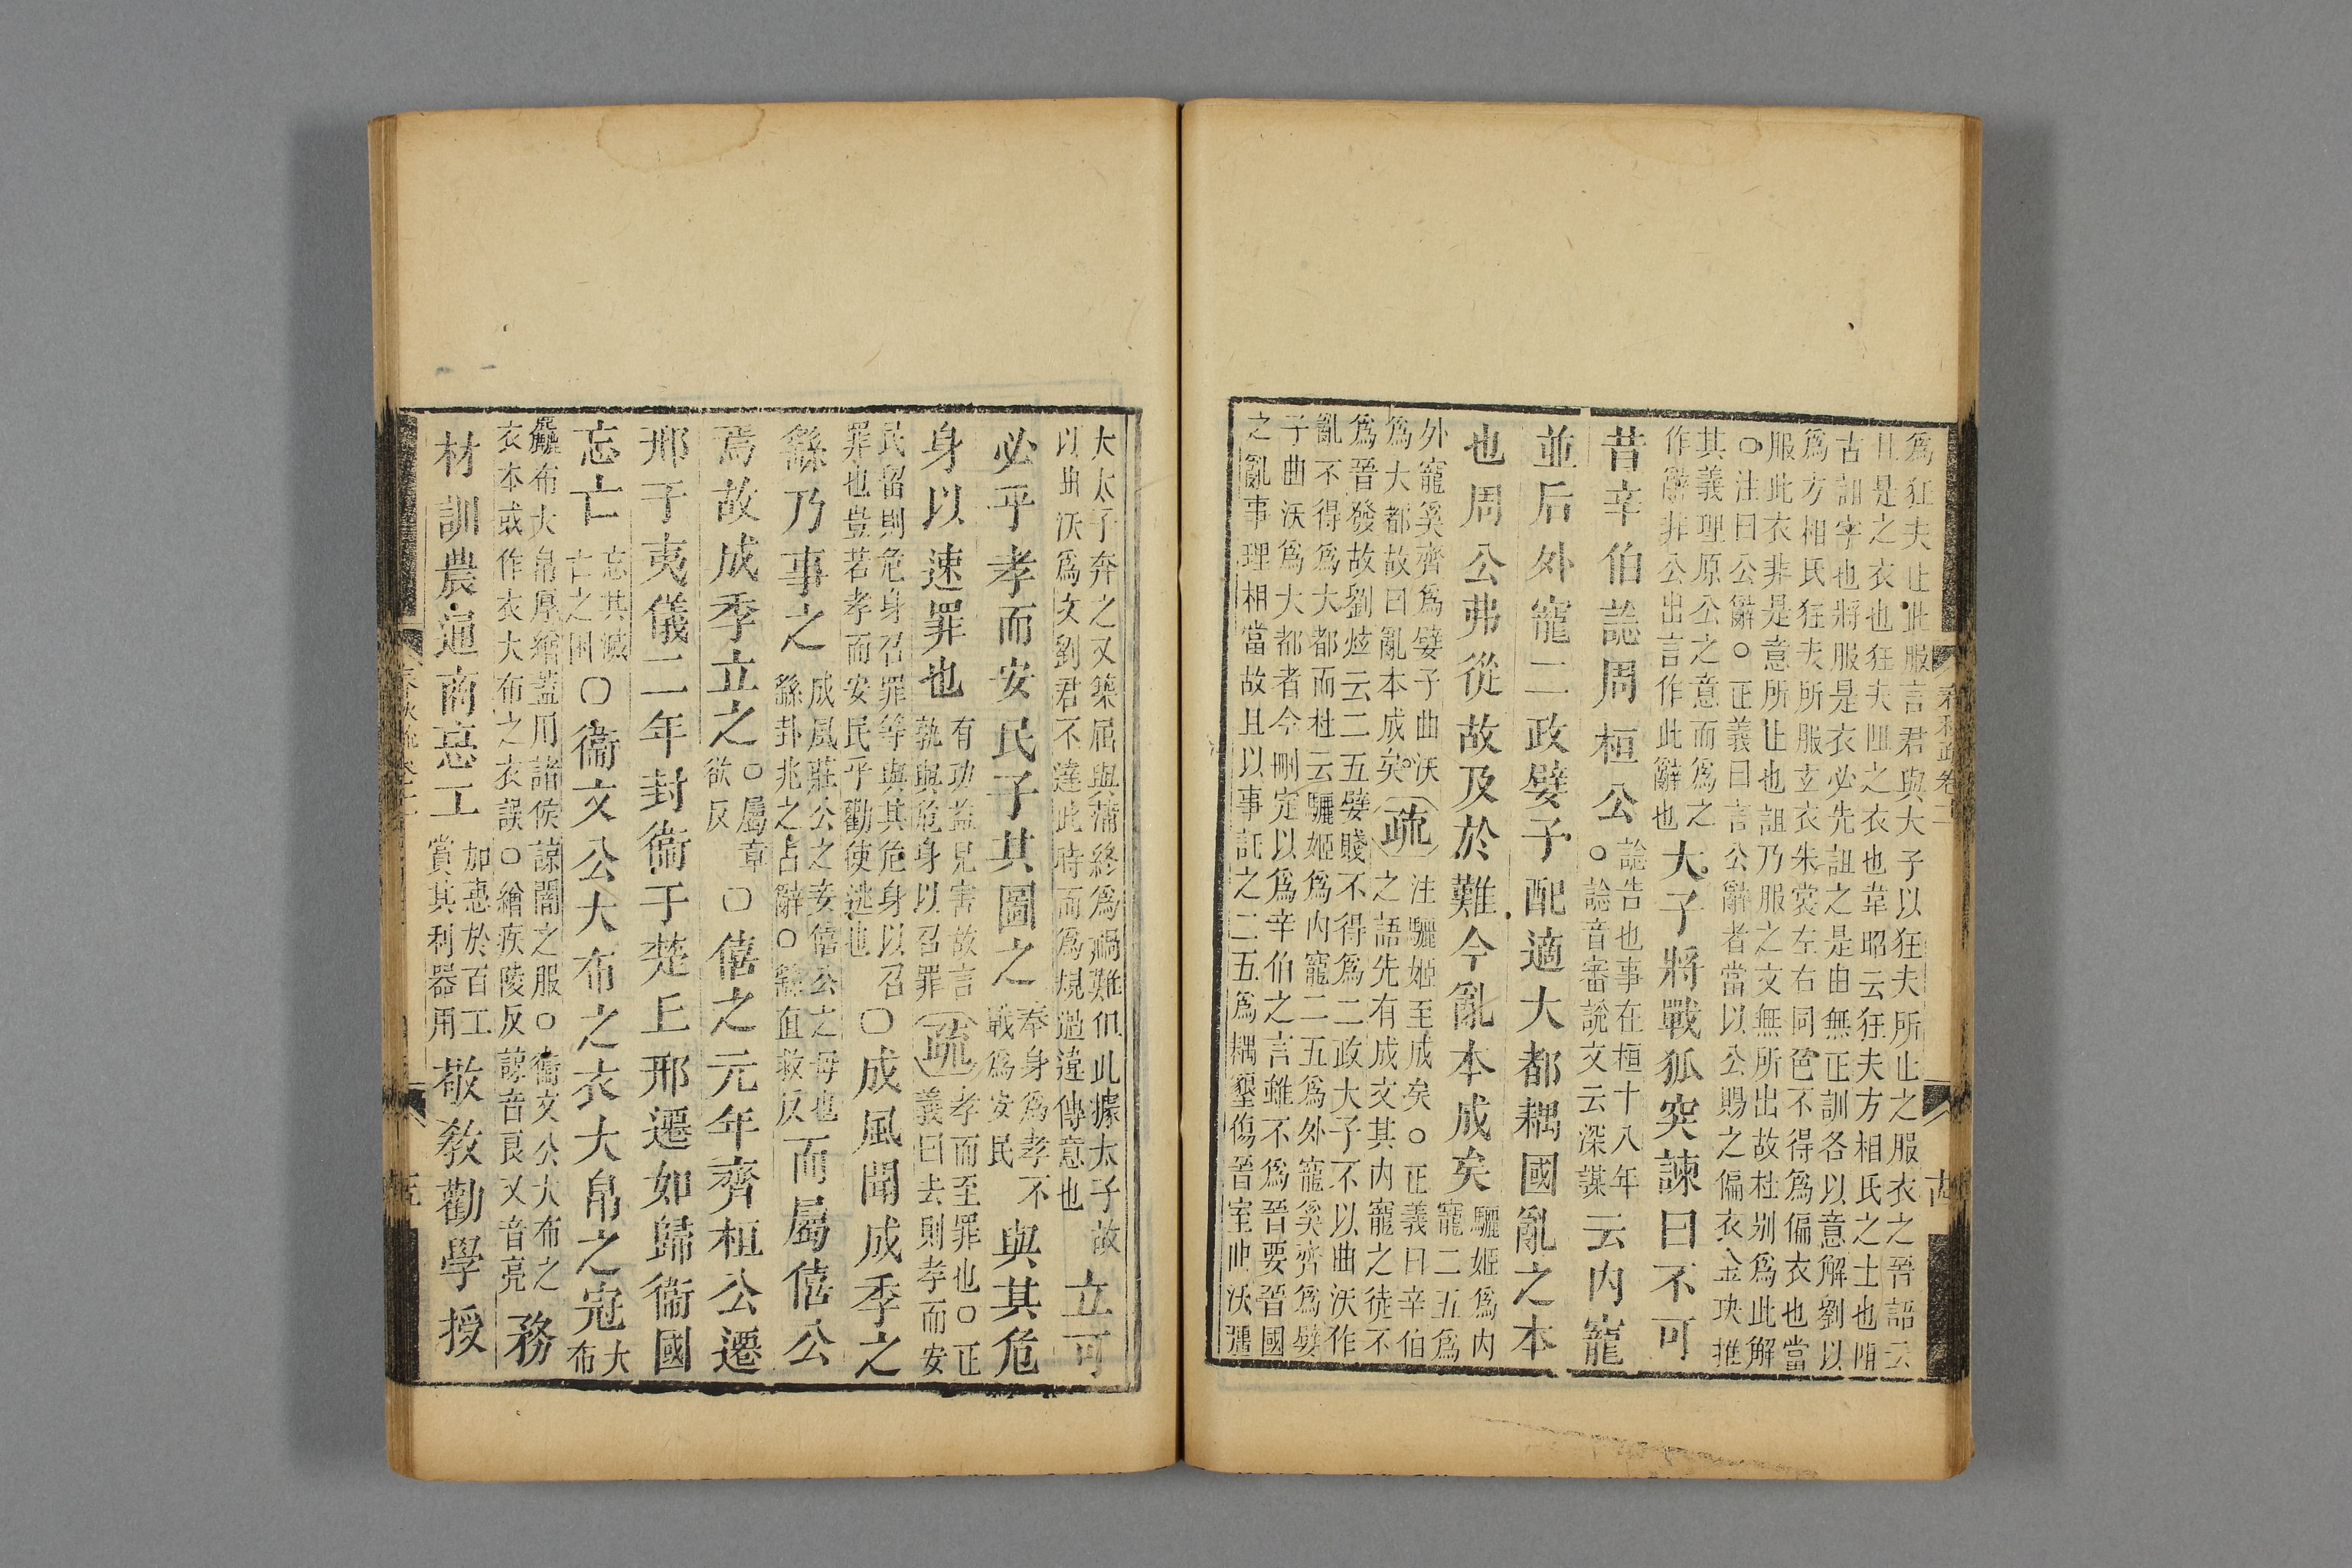 爲狂夫止此服言君與大子以狂夫所止之服衣之晉語云
且是之衣也狂夫阻之衣也韋昭云狂夫方相氏之士也阻
古詛字也將服是衣必先詛之是由無正訓各以意解劉以
爲方相氏狂夫所服玄衣朱裳左右同色不得爲偏衣也當
服此衣非是意所止也詛乃服之文無所出故杜别爲此解
○注曰公辭○正義曰言公辭者當以公賜之偏衣金玦推
其義理原公之意而爲之
作辭非公出言作此辭也
大子將戰狐突諫曰不可
昔辛伯諗周桓公
諗告也事在桓十八年
○諗音審說文云深謀
云内寵
並后外寵二政嬖子配適大都耦國亂之本
也周公弗從故及於難今亂本成矣
驪姬爲内
寵二五爲
外寵奚齊爲嬖子曲沃
爲大都故曰亂本成矣
疏
注驪姬至成矣○正義曰辛伯
之語先有成文其内寵之徒不
爲晉發故劉炫云二五嬖賤不得爲二政大子不以曲沃作
亂不得爲大都而杜云驪姬爲内寵二五爲外寵奚齊爲嬖
子曲沃爲大都者今刪定以爲辛伯之言雖不爲晉要晉國
之亂事理相當故且以事託之二五爲耦墾傷晉室曲沃彊
大太子奔之又築屈與蒲終爲禍難但此據太子故
以曲沃爲文劉君不達此時而爲規過違傳意也
立可
必乎孝而安民子其圖之
奉身爲孝不
戰爲安民
與其危
身以速罪也
有功益見害故言
孰與危身以召罪
疏
孝而至罪也○正
義曰去則孝而安
民留則危身召罪等與其危身以召
罪也豈若孝而安民乎勸使逃也
○成風聞成季之
繇乃事之
成風莊公之妾僖公之母也
繇卦兆之占辭○繇直救反
而屬僖公
焉故成季立之
○屬章
欲反
○僖之元年齊桓公遷
邢于夷儀二年封衞于楚丘邢遷如歸衞國
忘亡
忘其滅
亡之困
○衞文公大布之衣大帛之冠
大
布
麤布大帛厚繒蓋用諸侯諒闇之服○衞文公大布之
衣本或作衣大布之衣誤○繒疾陵反諒音良又音亮
務
材訓農通商惠工
加惠於百工
賞其利器用
敬教勸學授